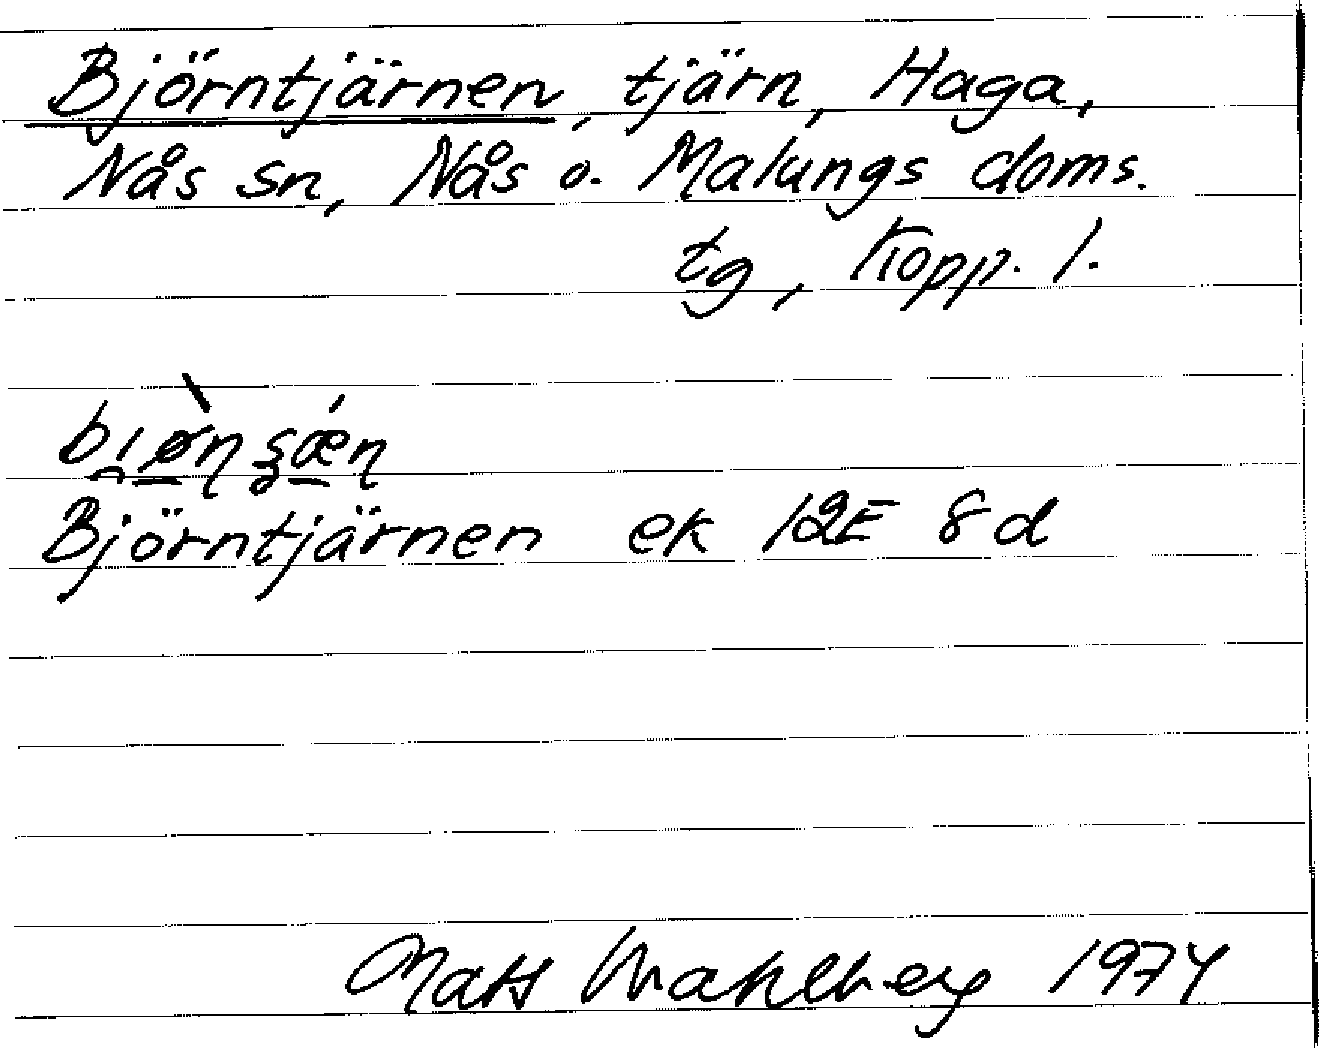 Björntjärnen, tjärn, Haga,
Nås sn, Nås o. Malungs doms.
tg, Kopp. l.
Björntjärnen ek 12E 8d
Mats Wahlberg 1974